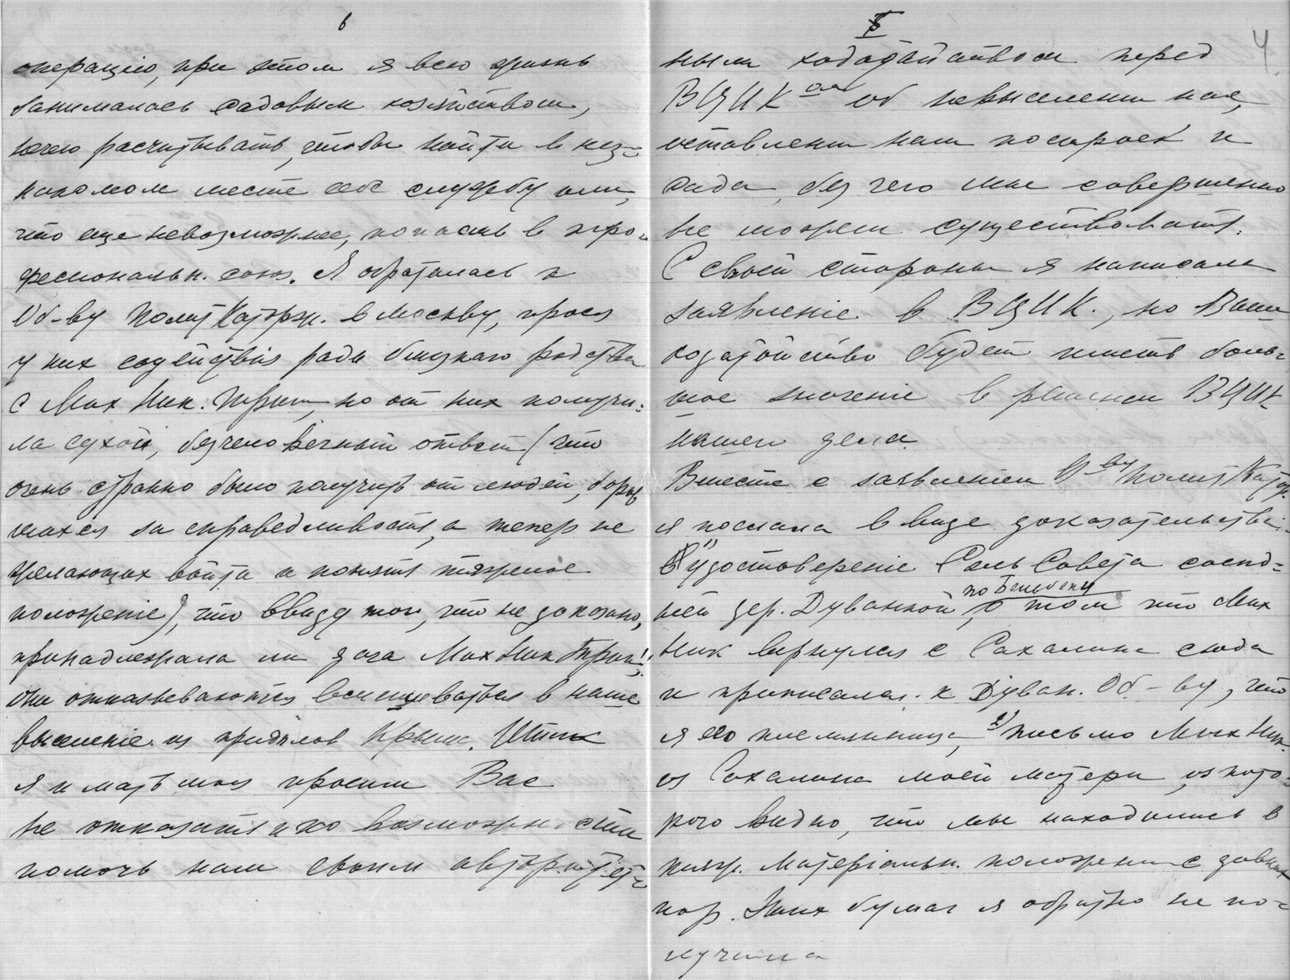 6
операцію, при этом я всю жизнь
занималась садовым хозяйством,
нечего расчитывать, чтобы найти в нез-
накомом месте себе службу или,
что еще невозможнее, попасть в про-
фессиональн. союз. Я обратилась к
Об-ву Полит Каторж. в Москву, прося
у них содействія ради близкаго родства
с Мих Ник. Триг, но от них получи-
ла сухой, безчеловечный ответ (что
очень странно было получить от людей, борив-
шихся за справедливость, а теперь не
желающих войти и понять тяжелое
положеніе), что ввиду того, что не доказано,
принадлежала ли дача Мих Ник Триг!,
они отказываются вмешиваться в наше
выселеніе из пределов Крыма.
я и мать моя просим Вас
не отказать и по возможности
помочь нам своим авторитет-
4
ным ходатайством перед
ВЦИК ом об невыселении нас,
оставлении нам построек и
сада, без чего мы совершенно
не можем существовать.
С своей стороны я написала
заявленіе в ВЦИК., но Ваше
ходатайство будет иметь боль-
шое значеніе в решении ВЦИК
нашего дела.
Вместе с заявлением О-ву Полит Катор.
я послала в виде доказательства:
1) удостоверение Сель Совета сосед-
ней дер. Дуванкой по Бельбеку, о том что Мих
Ник вернулся с Сахалина сюда
и приписался к Дуван. Об-ву, что
я его племянница, 2) письмо Мих Ник.
из Сахалина моей матери, из кото-
рого видно, что мы находились в
тяж. матеріальн. положении с давних
пор. Этих бумаг я обратно не по-
лучила